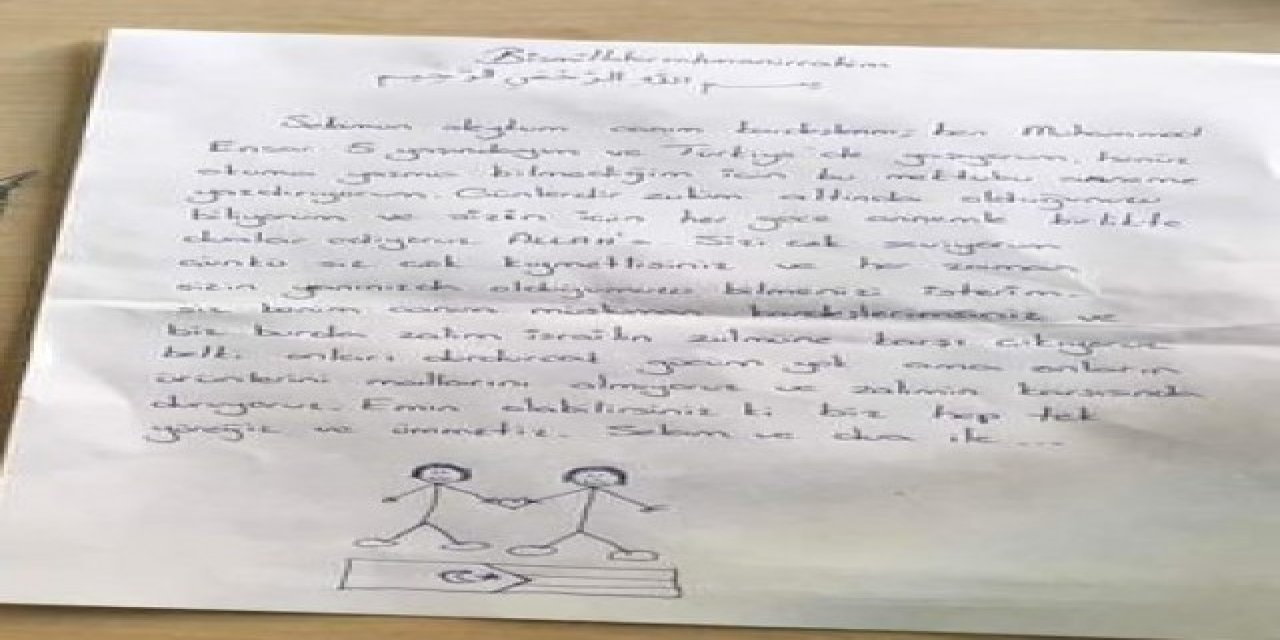 Bismillahirrahmanirrahim
بسم الله الرحمن الرحيم
Selamun aleyküm canım kardeşlerim, ben Muhammed
Ensar 5 yaşındayım ve Türkiye'de yaşıyorum, henüz
okuma yazma bilmediğim için bu mektubu anneme
yazdırıyorum. Günlerdir zulüm altında olduğunuzu
biliyorum ve sizin için her gece annemle birlikte
dualar ediyoruz ALLAH'a. Sizi çok seviyorum
çünkü siz çok kıymetlisiniz ve her zaman
sizin yanınızda olduğumuzu bilmenizi isterim.
siz benim canım müslüman kardeşlerimsiniz ve
biz burda zalim israilin zulmüne karşı çıkıyoruz
belki onları durduracak gücüm yok ama onların
ürünlerini mallarını almıyoruz ve zalimin karşısında
duruyoruz. Emin olabilirsiniz ki biz hep tek
yüreğiz ve ümmetiz. Selam ve dua ile ...